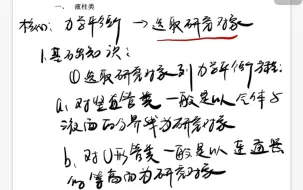 一、 液柱类
核心: 力学平衡 → 选取研究对象
1.基础知识:
①选取研究对象列力学平衡方程:
a. 对竖直管类一般是以气体与
液面的分界线为研究对象
b. 对U形管类一般是以连通器
的等高面为研究对象